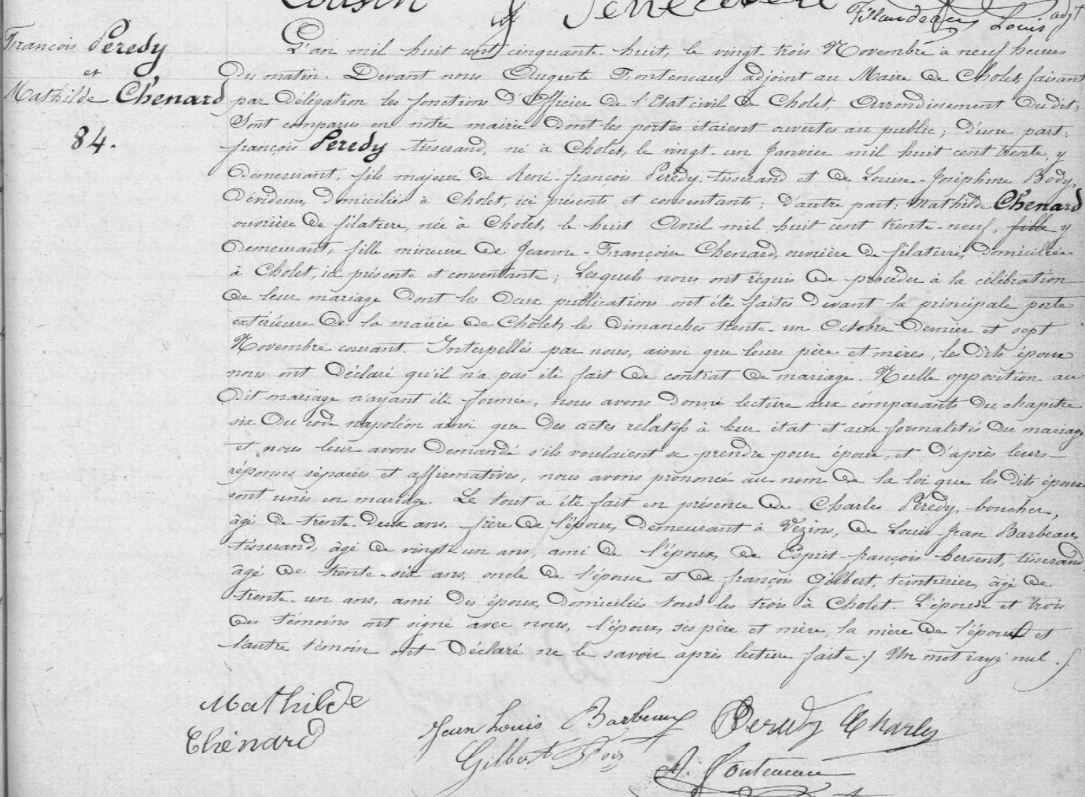 Cousin
Fillaudeau Louis adjt
François Peredy
et
Mathilde Chenard
84.
L'an mil huit cent cinquante huit, le vingt trois Novembre à neuf heures
du matin. Devant nous Auguste Fonteneau, adjoint au Maire de Cholet, faisant
par délégation les fonctions d'Officier de l'Etat civil de Cholet, Arrondissement dudit;
Sont comparus en notre mairie dont les portes étaient ouvertes au public; d'une part:
françois Peredy tisserand, né à Cholet, le vingt-un Janvier mil huit cent trente, y
demeurant, fils majeur de René-françois Peredy, tisserand et de Louise-Joséphine Body,
dévideuse, domiciliés à Cholet, ici présents et consentants; d'autre part: Mathilde Chenard
ouvrière de filature, née à Cholet, le huit Avril mil huit cent trente-neuf, fille y
demeurant, fille mineure de Jeanne-Françoise Chenard, ouvrière de filature, domiciliée
à Cholet, ici présente et consentante; Lesquels nous ont réquis de procéder à la célébration
de leur mariage dont les deux publications ont été faites devant la principale porte
extérieure de la mairie de Cholet, les dimanches trente-un Octobre dernier et sept
Novembre courant. Interpellés par nous, ainsi que leurs père et mères, les dits époux
nous ont déclaré qu'il n'a pas été fait de contrat de mariage. Nulle opposition au
dit mariage n'ayant été formée, nous avons donné lecture aux comparants du chapitre
six du code napoléon ainsi que des actes relatifs à leur état et aux formalités du mariage
et nous leur avons demandé s'ils voulaient se prendre pour époux, et d'après leurs
réponses séparées et affirmatives, nous avons prononcé au nom de la loi que les dits époux
sont unis en mariage. Le tout a été fait en présence de Charles Peredy, boucher,
âgé de trente-deux ans, frère de l'époux, demeurant à Vezins, de Louis-Jean Barbeau,
tisserand, âgé de vingt-un ans, ami de l'époux, de Esprit-françois Bersent, tisserand
âgé de trente-six ans, oncle de l'épouse et de françois Gilbert, teinturier, âgé de
trente-un ans, ami des époux, domiciliés tous les trois à Cholet. L'épouse et trois
des témoins ont signé avec nous, l'époux, ses père et mère, la mère de l'épouse et
l'autre témoin ont déclaré ne le savoir après lecture faite ./. Un mot rayé nul ./.
Mathilde
Chénard
Jean Louis Barbeaux
Peredy Charles
Gilbert Fois
A. Fonteneau